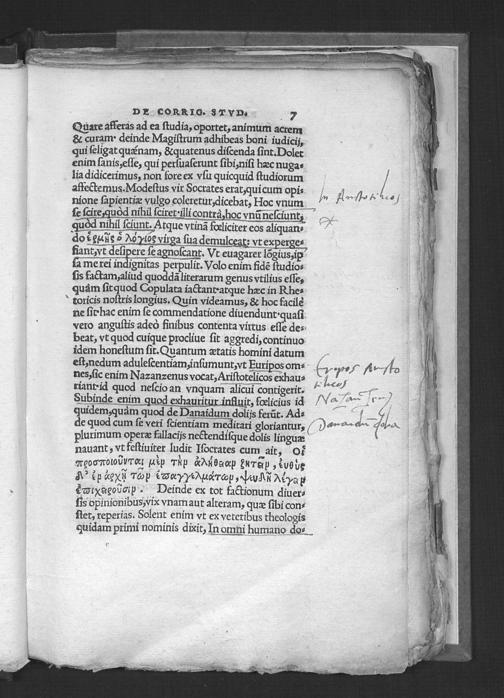 DE CORRIG. STVD. 7
Quare afferas ad ea studia, oportet, animum acrem
& curam· deinde Magistrum adhibeas boni iudicij,
qui seligat quænam, & quatenus discenda sint. Dolet
enim sanis, esse, qui persuaserunt sibi, nisi hæc nuga-
lia didicerimus, non fore ex vsu quicquid studiorum
affectemus. Modestus vir Socrates erat, qui cum opi-
nione sapientiæ vulgo coleretur, dicebat, Hoc vnum
se scire, quòd nihil sciret· illi contrà, hoc vnū nesciunt,
quòd nihil sciunt. Atque vtinā fœliciter eos aliquan-
do ἑρμῆς ὁ λόγιος virga sua demulceat· vt experge-
fiant, vt desipere se agnoscant. Vt euagarer lōgius, ip
sa me rei indignitas perpulit. Volo enim fidē studio-
sis factam, aliud quoddā literarum genus vtilius esse,
quàm sit quod Copulata iactant· atque hæc in Rhe-
toricis nostris longius. Quin videamus, & hoc facilè
ne sit· hac enim se commendatione diuendunt· quasi
vero angustis adeò finibus contenta virtus esse de-
beat, vt quod cuique procliue sit aggredi, continuo
idem honestum sit. Quantum ætatis homini datum
est, nedum adulescentiam, insumunt, vt Euripos om-
nes, sic enim Nazanzenus vocat, Aristotelicos exhau-
riant· id quod nescio an vnquam alicui contigerit.
Subinde enim quod exhauritur influit, fœlicius id
quidem, quàm quod de Danaidum dolijs ferūt. Ad-
de quod cum se veri scientiam meditari gloriantur,
plurimum operæ fallacijs nectendisque dolis linguæ
nauant, vt festiuiter ludat Isocrates cum ait, Οἱ
προσποιοῦνται μὲν τὴν ἀλήθειαν ζητεῖν, εὐθὺς
δ' ἐν ἀρχῇ τῶν ἐπαγγελμάτων, ψευδῆ λέγειν
ἐπιχειροῦσιν. Deinde ex tot factionum diuer-
sis opinionibus, vix vnam aut alteram, quæ sibi con-
stet, reperias. Solent enim vt ex veteribus theologis
quidam primi nominis dixit, In omni humano do-
In Aristotelicos
Euripos Aristo
telicos
Danaidū dolia